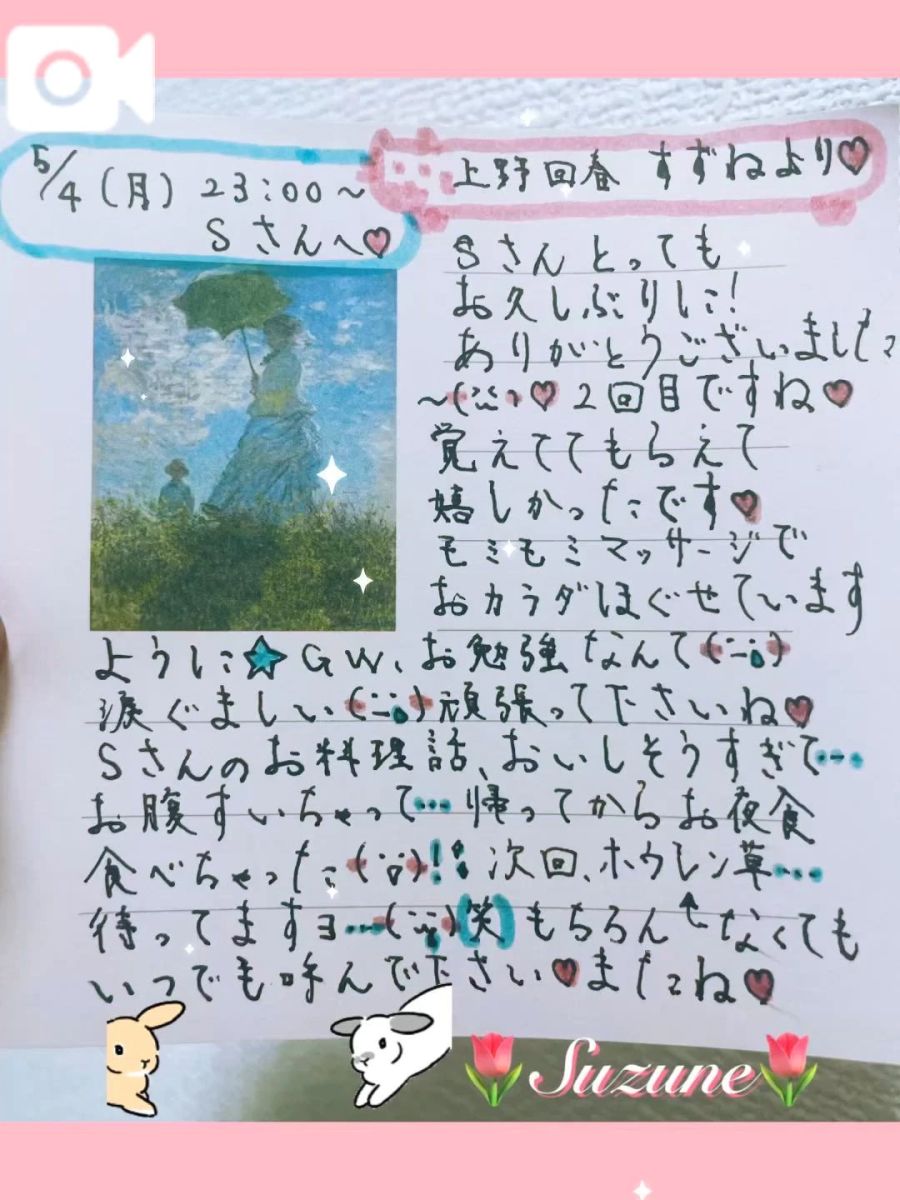 5/4(月) 23:00〜
Sさんへ♡
上野回春 すずねより♡
Sさんとっても
お久しぶりに!
ありがとうございました
〜(
♡2回目ですね♡
覚えててもらえて
嬉しかったです♡
モミモミマッサージで
おカラダほぐせています
ように★GW、お勉強なんて
涙ぐましい
頑張って下さいね♡
Sさんのお料理話、おいしそうすぎて…
お腹すいちゃって…帰ってからお夜食
食べちゃった
!!次回、ホウレン草…
待ってますヨ…
(笑)もちろん↑なくても
いつでも呼んで下さい♡またね♡
Suzune